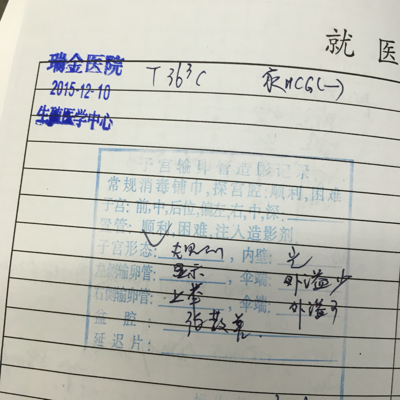 就医
瑞金医院
2015-12-10
生殖医学中心
T 36³C 尿HCG(-)
子宫输卵管造影记录
常规消毒铺巾,探宫腔:顺利,困难
子宫:前,中,后位,偏左,右,中,深:
置管:顺利,困难,注入造影剂
子宫形态: 内壁:光
左侧输卵管:显示 伞端:外溢少
右侧输卵管:上举 伞端:外溢可
盆腔:
延迟片: